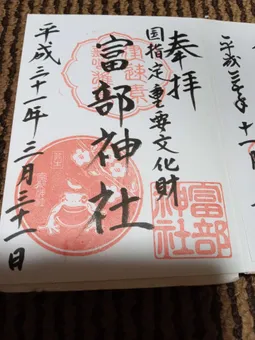 奉拝
国指定重要文化財
富部神社
平成三十一年三月三十一日
富部神社